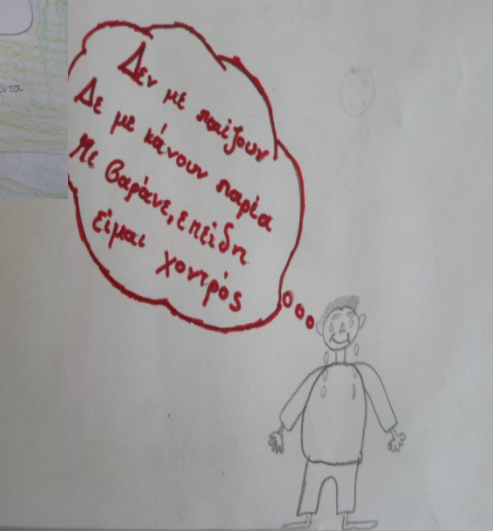 Δεν με παίζουν
Δε με κάνουν παρέα
Με βαράνε, επειδη
είμαι χοντρός